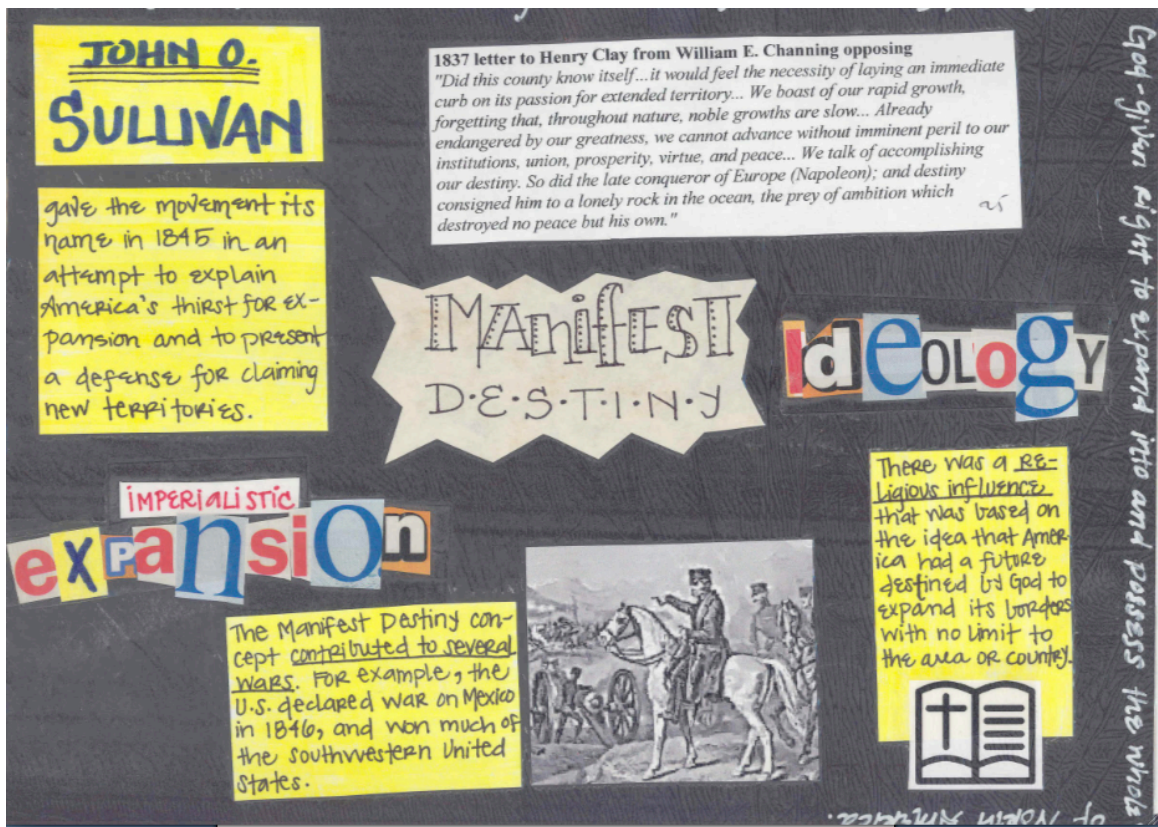 JOHN O.
SULLIVAN
gave the movement its
name in 1845 in an
attempt to explain
America's thirst for ex-
pansion and to present
a defense for claiming
new territories.
1837 letter to Henry Clay from William E. Channing opposing
"Did this county know itself...it would feel the necessity of laying an immediate
curb on its passion for extended territory... We boast of our rapid growth,
forgetting that, throughout nature, noble growths are slow... Already
endangered by our greatness, we cannot advance without imminent peril to our
institutions, union, prosperity, virtue, and peace... We talk of accomplishing
our destiny. So did the late conqueror of Europe (Napoleon); and destiny
consigned him to a lonely rock in the ocean, the prey of ambition which
destroyed no peace but his own."
MANifEST
D·E·S·T·I·N·Y
IdeOLogY
iMPERiAListic
exPansiOn
The Manifest Destiny con-
cept contributed to several
wars. For example, the
U.S. declared war on Mexico
in 1846, and won much of
the southwestern United
States.
There was a re-
ligious influence
that was based on
the idea that Amer-
ica had a future
destined by God to
expand its borders
with no limit to
the area or country.
God-given right to expand into and possess the whole
of North America.